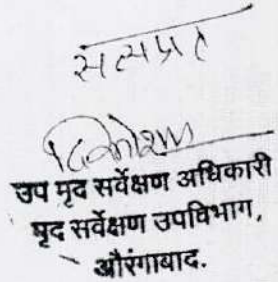 सत्यप्रत
उप मृद सर्वेक्षण अधिकारी
मृद सर्वेक्षण उपविभाग,
औरंगाबाद.